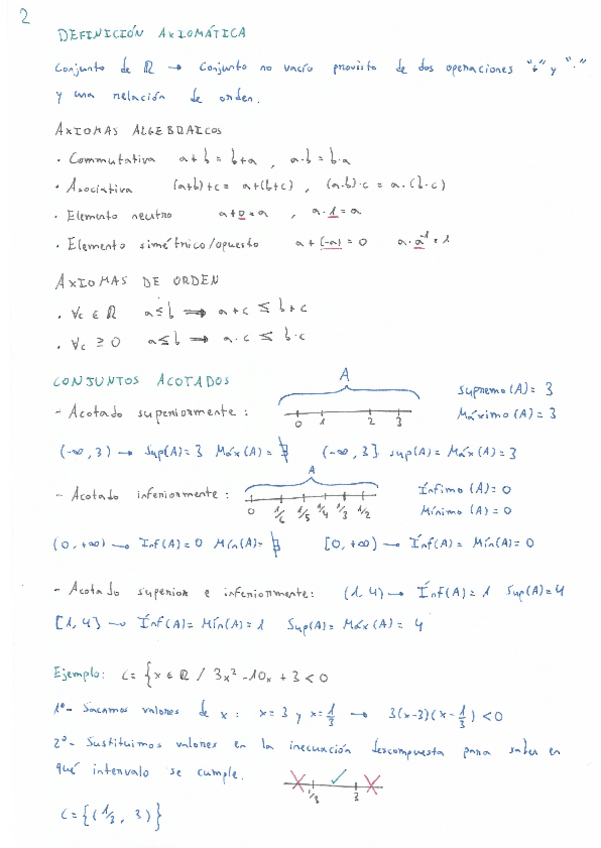 2
DEFINICIÓN AXIOMÁTICA
Conjunto de ℝ → Conjunto no vacío provisto de dos operaciones "+" y "·"
y una relación de orden.
AXIOMAS ALGEBRAICOS
· Commutativa a+b = b+a , a·b = b·a
· Asociativa (a+b)+c = a+(b+c) , (a·b)·c = a·(b·c)
· Elemento neutro a+0=a , a·1=a
· Elemento simétrico/opuesto a+(-a)=0 a·a⁻¹=1
AXIOMAS DE ORDEN
· ∀c ∈ ℝ a≤b ⟹ a+c ≤ b+c
· ∀c ≥ 0 a≤b ⟹ a·c ≤ b·c
CONJUNTOS ACOTADOS
A
Supremo (A)= 3
- Acotado superiormente :
0 1 2 3
Máximo (A) = 3
(-∞, 3) → Sup(A)= 3 Máx(A)= ∄ (-∞, 3] sup(A)= Máx(A)=3
A
- Acotado inferiormente :
0 1/6 1/5 1/4 1/3 1/2
Ínfimo (A)= 0
Mínimo (A) = 0
(0, +∞) → Ínf(A)= 0 Mín(A)= ∄ [0, +∞) → Ínf(A)= Mín(A)= 0
- Acotado superior e inferiormente: (1, 4) → Ínf(A)= 1 Sup(A)=4
[1, 4] → Ínf(A)= Mín(A)= 1 Sup(A)= Máx(A)= 4
Ejemplo: C= { x ∈ ℝ / 3x² -10x + 3 < 0
1º- Sacamos valores de x : x= 3 y x= 1/3 → 3(x-3)(x-1/3) < 0
2º- Sustituimos valores en la inecuación descompuesta para saber en
qué intervalo se cumple.
1/3 3
C= {(1/3, 3)}